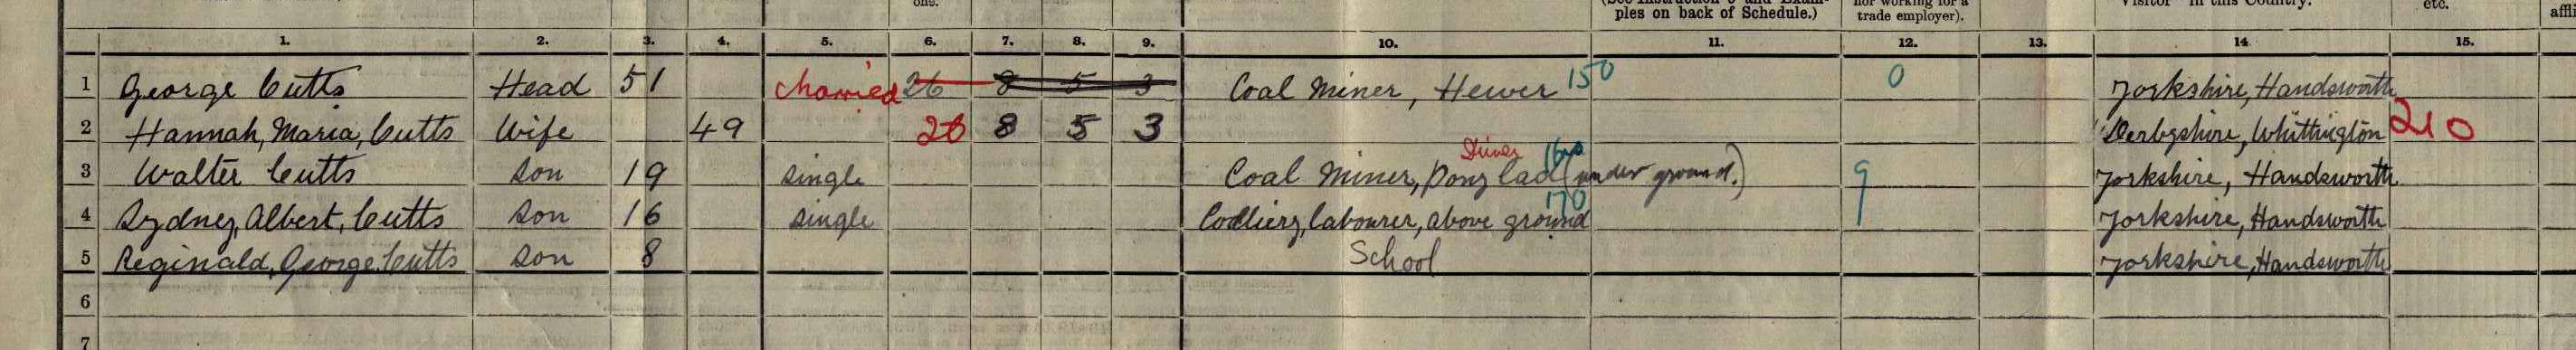 one.
ples on back of Schedule.)
nor working for a
trade employer).
Visitor in this Country.
etc.
1. 2. 3. 4. 5. 6. 7. 8. 9. 10. 11. 12. 13. 14 15.
1 George Cutts Head 51 Married 26 8 5 3 Coal Miner, Hewer 150 0 Yorkshire, Handsworth
2 Hannah, Maria, Cutts Wife 49 26 8 5 3 Derbyshire, Whittington 210
Driver
3 Walter Cutts Son 19 single Coal Miner, Pony lad (under ground.) 9 Yorkshire, Handsworth
170
4 Sydney, Albert, Cutts Son 16 single Colliery, labourer, above ground Yorkshire, Handsworth
5 Reginald, George, Cutts Son 8 School Yorkshire, Handsworth
6
7